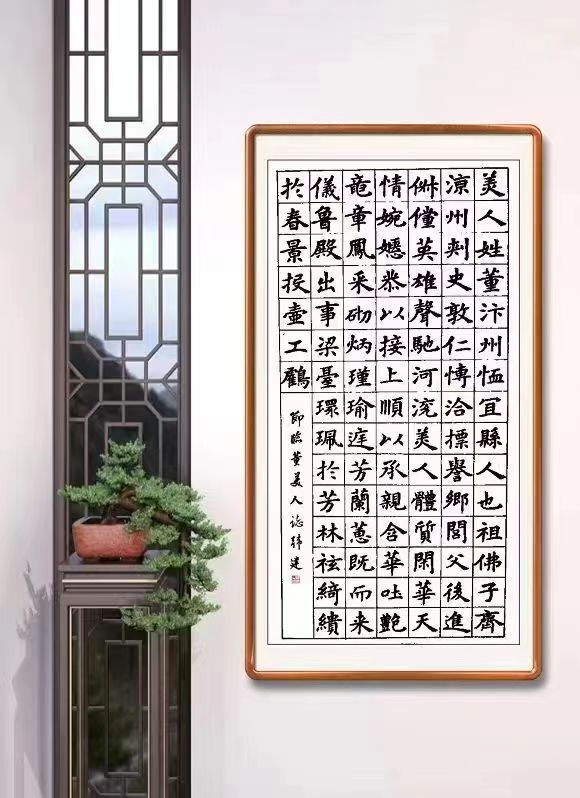 美人姓董汴州恤宜縣人也祖佛子齊
涼州刾史敦仁愽洽摽譽鄉閭父後進
俶儻英雄聲馳河沇美人體質閑華天
情婉嫕恭以接上順以承親含華吐艶
竜章鳳采砌炳瑾瑜庭芳蘭蕙既而来
儀魯殿出事梁臺環珮於芳林袨綺繢
於春景投壷工鸖
節臨董美人誌 建